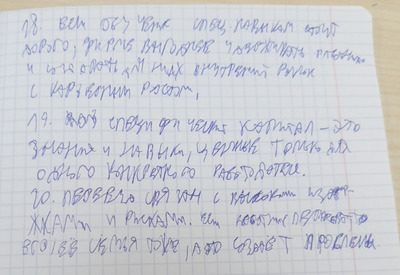 18. если обучение спец. навыкам стоит
дорого, фирме выгоднее удерживать работника
и создавать для них внутренний рынок
с карьерным ростом,
19. специфический капитал – это
знания и навыки, ценные только для
одного конкретного работодателя.
20. переезд связан с высокими издер-
жками и рисками. если работник переезжает
его/её семья тоже, а это создаёт проблемы.